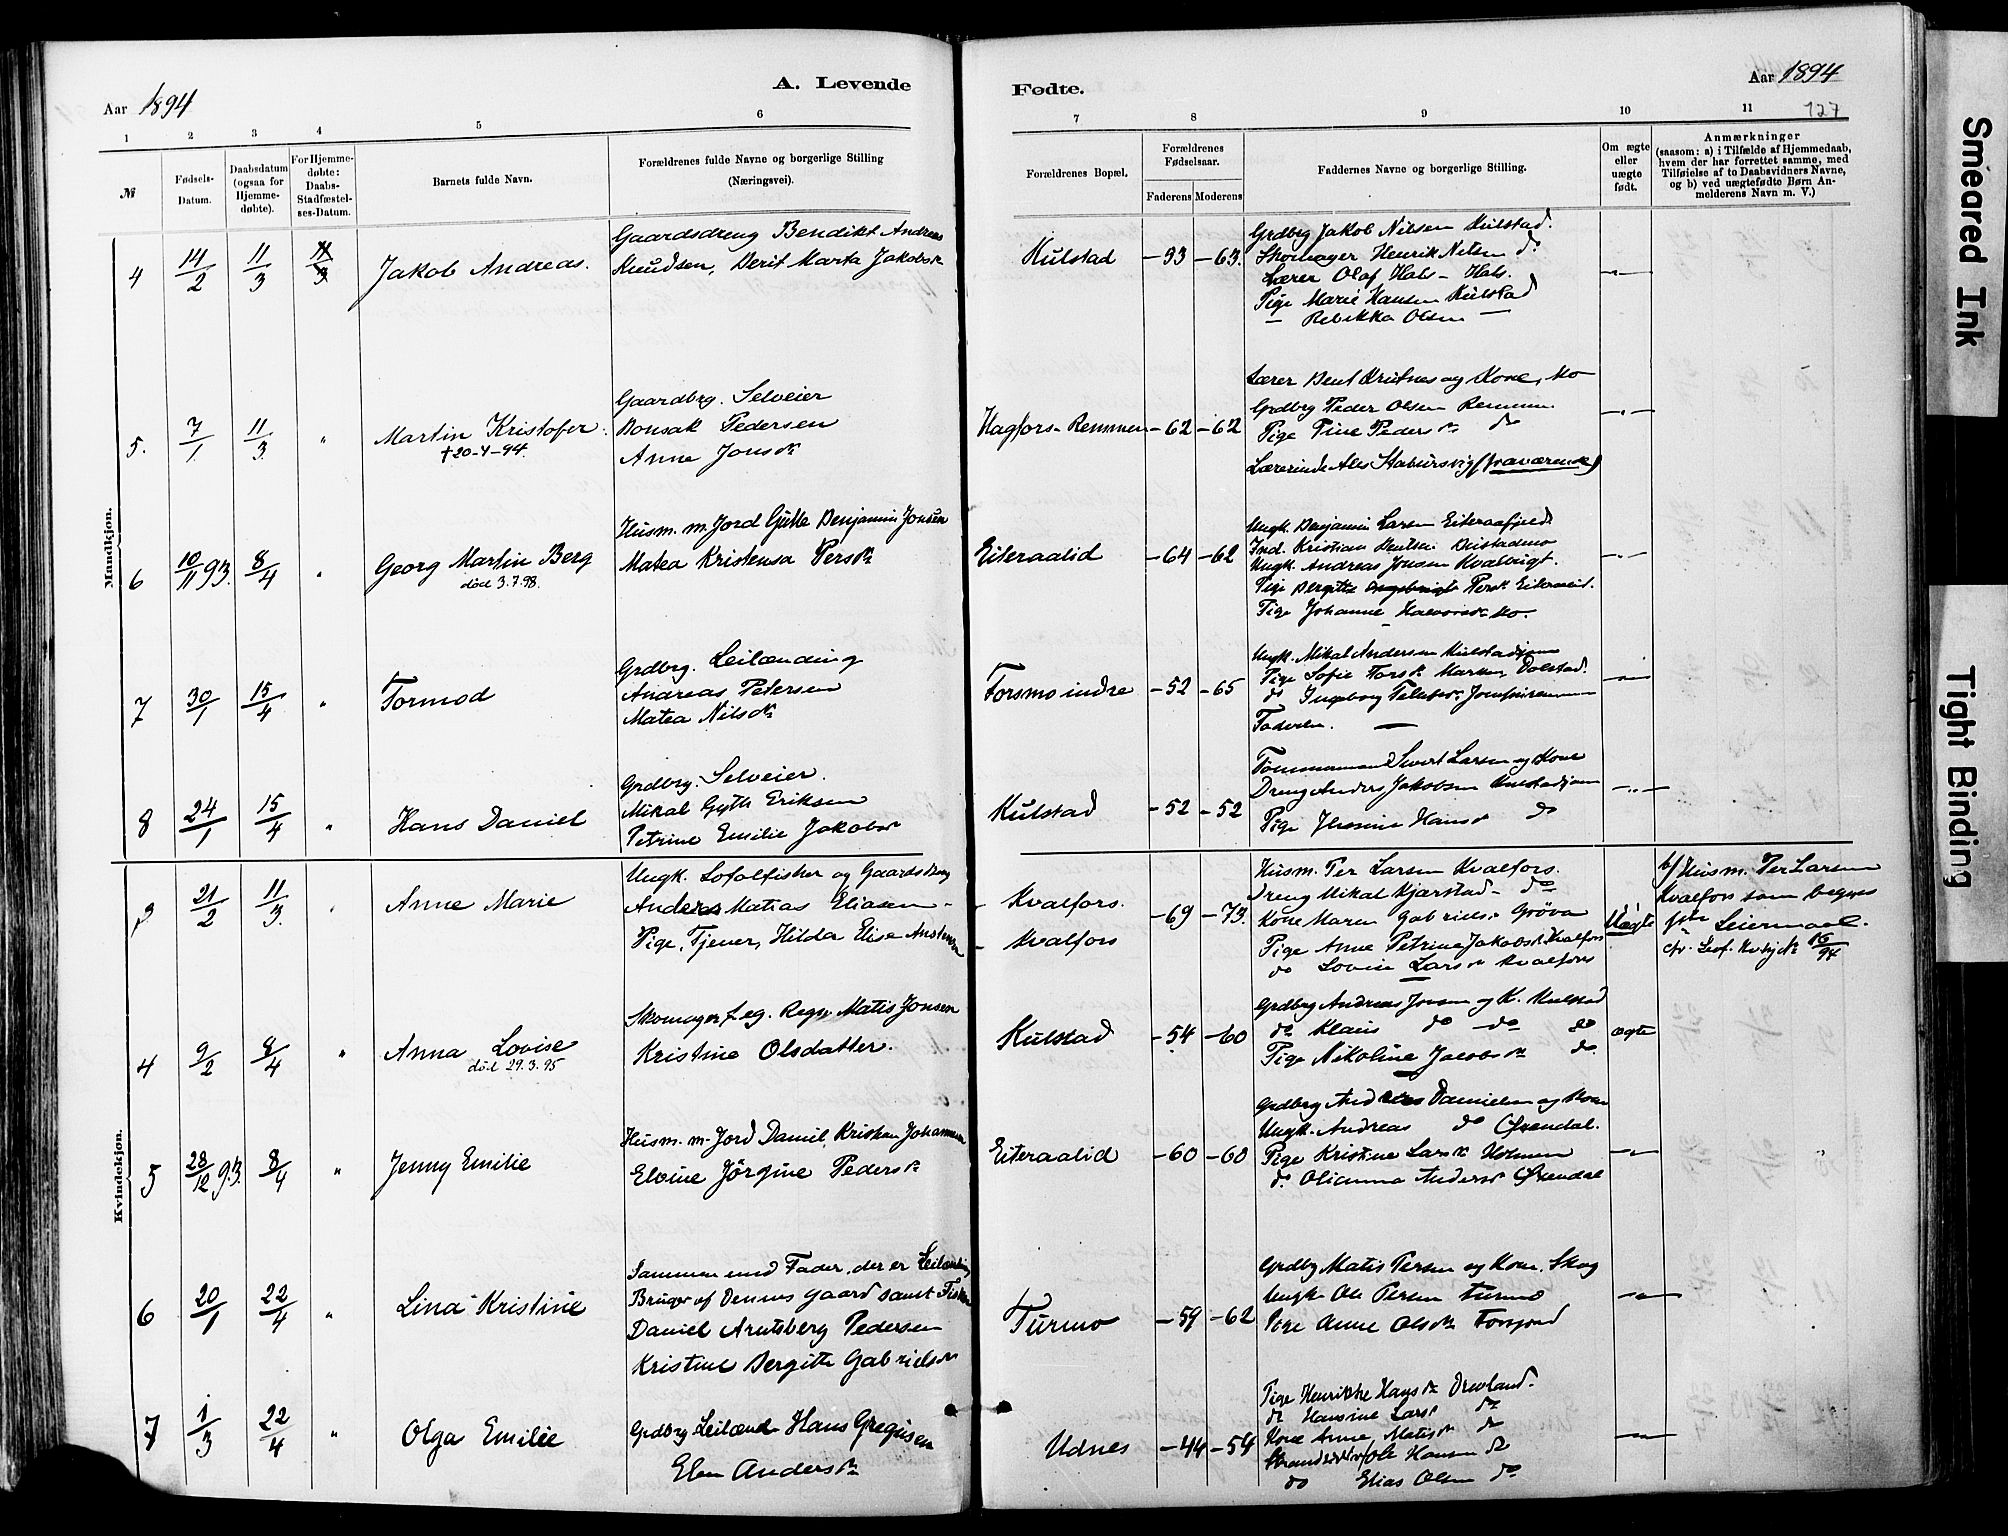 Aar 1894
A. Levende
1 2 3 4 5 6
№
Fødsels-Datum.
Daabsdatum (ogsaa for Hjemmedøbte).
For Hjemmedøbte: Daabs-Stadfæstelses-Datum.
Barnets fulde Navn.
Forældrenes fulde Navne og borgerlige Stilling
(Næringsvei).
Mandkjøn.
4 14/2 11/3 11/3 Jakob Andreas.
Gaardsdreng Bendikt Andreas
Knudsen, Berit Marta Jakobsdr
5. 7/1 11/3 " Martin Kristofer.
† 20-4-94.
Gaardbrg. Selveier
Bonsak Pedersen
Anne Jonsdr
6 10/11 93. 8/4 " Georg Martin Berg
død 3.7.98.
Husm. m. Jord Gjutle Benjamin Jonsen
Matea Kristensa Persdr
7 30/1 15/4 " Tormod
Grdbrg. Leilænding
Andreas Petersen
Matea Nilsdr
8 24/1 15/4 " Hans Daniel
Grdbrg. Selveier.
Mikal Gyth Eriksen
Petrine Emilie Jakobsdr
Kvindekjøn.
3 21/2 11/3. Anne Marie
Ungk. Lofotfisker og Gaardsdreng
Anders Matias Eliasen -
Pige, Tjener, Hilda Elise
4 9/2 8/4 " Anna Lovise
død 29.3.95
Skomager Matis Jonsen
Kristine Olsdatter.
5 28/12 93. 8/4 " Jenny Emilie
Husm. m. Jord Daniel Kristian Johannesen
Elvine Jörgine Pedersdr
6 20/1 22/4 " Lina Kristine
Sammen med Fader, der er Leilænding
Bruger af Dennes Gaard samt Fisker
Daniel Arntsberg Pedersen
Kristine Bergitte Gabrielsdr
7 1/3 22/4 " Olga Emilie
Grdbrg Leilænd Hans Gregusen
Elen Andersdr
Fødte.
Aar 1894
127
7 8 9 10 11
Forældrenes Bopæl.
Forældrenes Fødselsaar.
Faderens Moderens
Faddernes Navne og borgerlige Stilling.
Om ægte eller uægte født.
Anmærkninger
(saasom: a) i Tilfælde af Hjemmedaab,
hvem der har forrettet samme, med
Tilføielse af to Daabsvidners Navne,
og b) ved uægtefødte Børn Anmelderens Navn m. V.)
Kulstad -93 -63.
Grdbrg Jakob Nilsen Kulstad.
Skomager Henrik Nilsen do
Lærer Olaf Hals - Hals.
Pige Marie Hansen Kulstad
— Rebekka Olsen —
Hagfors-Remmen -62 -62
Lærer Bent og Kone, Mo
Grdbrg Peder Olsen Remmen
Pige Pedersdr do
Lærerinde Ales Stabursvig (fraværende)
Eiteraalid -64 -62
Ungk. Benjamin Larsen Eiteraafjeld.
Ind. Kristian
Ungk. Andreas Jonsen
Pige Bergitte Persdr Eiteraalid.
Pige Johanne Mo.
Forsmo indre -52 -65
Ungk. Mikal Andersen
Pige Sofie Dolstad.
do Ingeborg
Faderen. —
Kulstad -52 -52
Tömmermand Sivert Larsen og Kone
Dreng Anders Jakobsen
Pige Hansdr do
Kvalfors. -69 -73.
Kvalfors
Husm. Per Larsen Kvalfors.
Dreng Mikal Kjærstad- do
Kone Maren Gabrielsdr Grøva
Pige Anne Petrine Jakobsdr Kvalfors
do Lovise Larsdr Kvalfors
Uægte
b/ Husm. Per Larsen
Kvalfors som begjæres
for Leiermaal.
16/94
Kulstad -54 -60
Grdbrg Andreas Jonsen og K. Kulstad
do Klaus do do do
Pige Nikoline Jacobsdr do.
ægte
Eiteraalid -60 -60
Grdbrg Anders Danielsen og Kone
Ungk. Andreas do Øxendal.
Pige Kristine Larsdr Holmen
do. Olianna Andersdr Øxendal
Turmo -59 -62
Grdbrg Matis Persen og Kone. Skog
Ungk Ole Persen Turmo
Pige Anne Olsdr
Udnes -44 -54
Pige Henrikke Hansdr Drevland.
do Hansine Larsdr do
Kone Anna Matisdr do
Ole Hansen do
do Elias Olsen do
Smeared Ink
Tight Binding